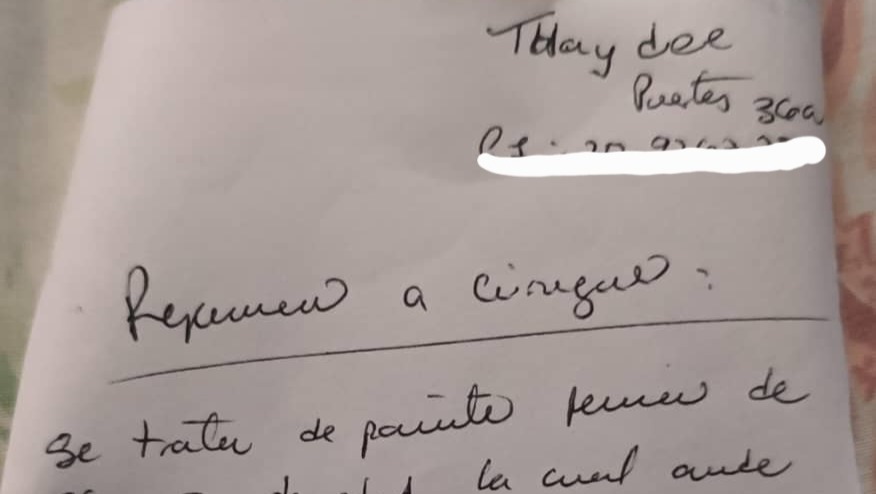 Haydee
Puertas 36a
Resumen a cirugía:
Se trata de paciente femenina de
la cual acude